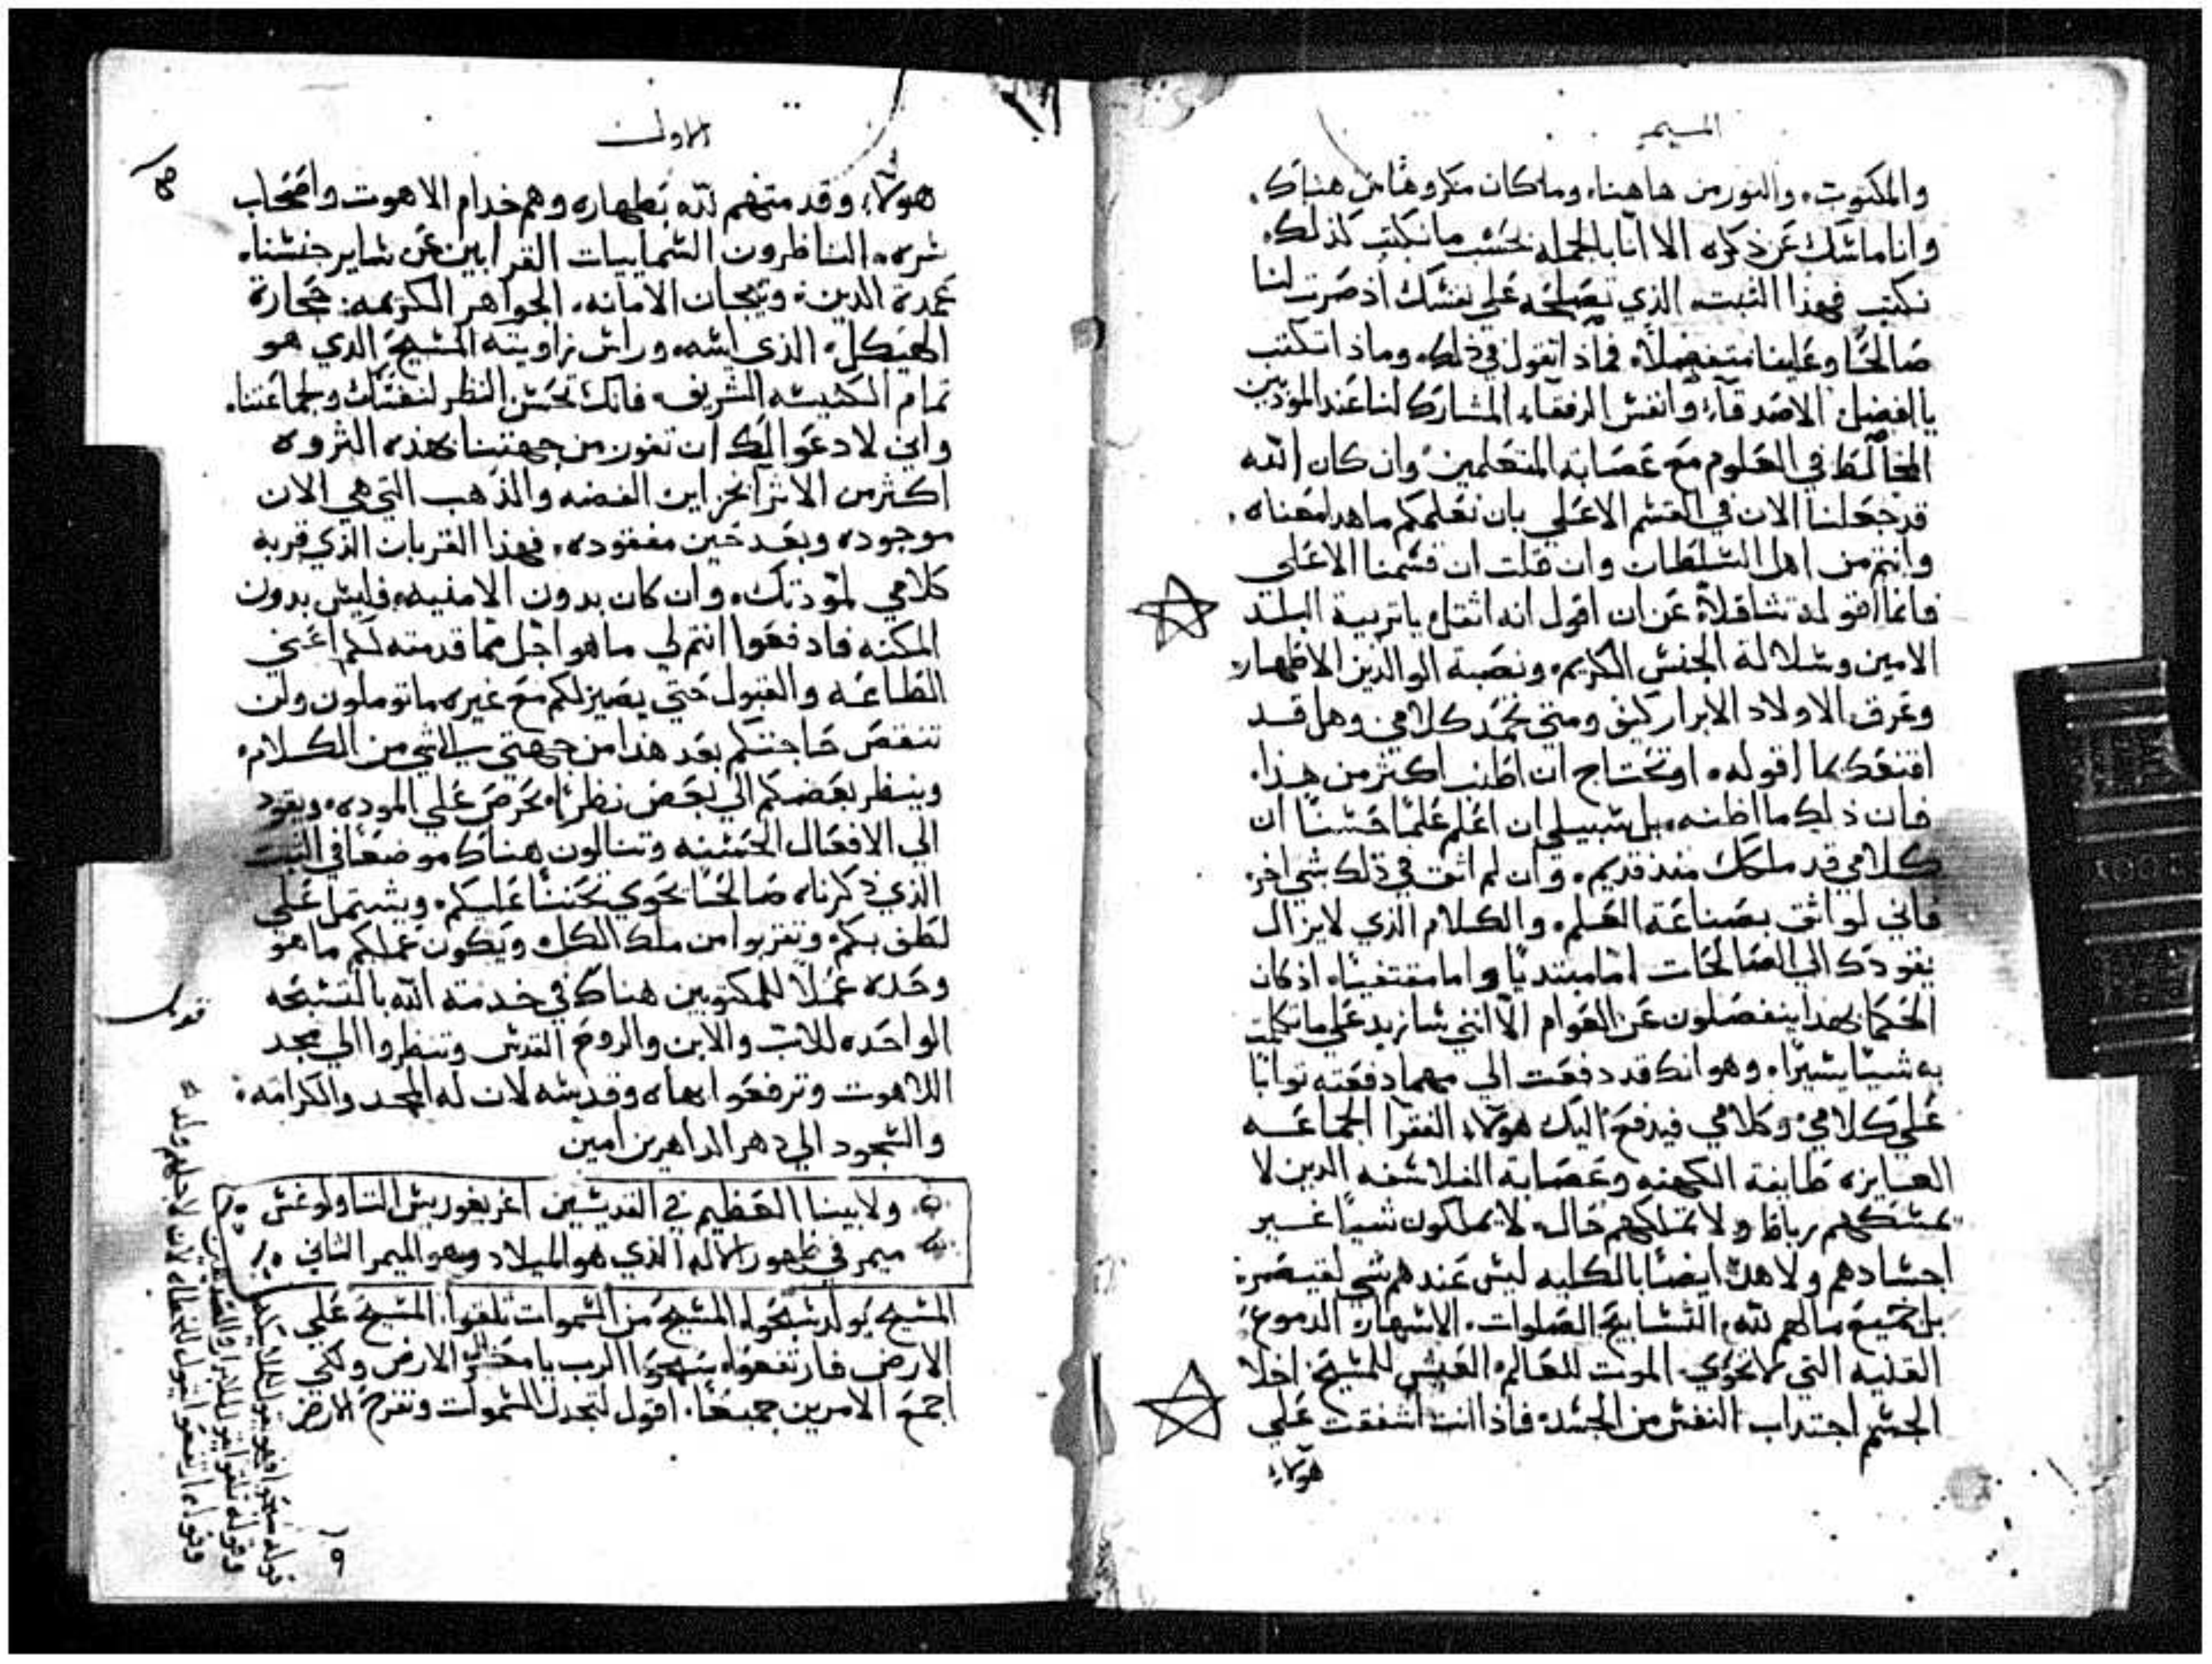 الميمر
والمكتوبه والنور من هاهنا، وما كان مكروهًا من هناك،
وانا ماسك عن ذكره الا انا بالجمله نحسب ما نكتب كذلك
نكتب فهذا الثبت الذي تصلحه علي نفسك اذ صرت لنا
صالحًا وعلينا متفضلاً، فماذا تقول في ذلك وماذا تكتب
يا افضل الاصدقاء وانفس الرفقاء المشارك لنا عند المودبين
المخالط في العلوم مع عصابة المتعلمين وان كان الله
قد جعلنا الان في القسم الاعلي بان نعلمكم ما هدا معناه،
وانتم من اهل السلطان وان قلت ان قسمنا الاعلي
فانما اقوله تثاقلاً عن ان اقول انه اثقل يا تربية البلد
الامين وسلالة الجنس الكريم ونصبة الوالدين الاطهار
وعرق الاولاد الابرار كيف ومتي نحمد كلامي وهل قد
اقنعك بما اقوله، او تحتاج ان اطنب اكثر من هذا،
فان ذلك ما اظنه، بل سبيلي ان اعلم علمًا حسنًا ان
كلامي قد ملكك منذ قديم، وان لم اثق في ذلك بشي اخر
فاني لواثق بصناعة العلم، والكلام الذي لا يزال
يقودك الي الصالحات اما مبتديًا واما مقتفيًا، اذ كان
الحكما بهدا ينفصلون عن العوام الا انني سازيد علي ما تكلمت
به شيًا يسيرًا، وهو انك قد دفعت الي مهما دفعته ثوابًا
علي كلامي وكلامي فيدفع اليك هولاء الفقرا الجماعه
العايزه طايفة الكهنه وعصابة الفلاسفه الدين لا
يمسكهم رباط ولا تملكهم حال، لا يملكون شيًا غير
اجسادهم ولا هده ايضًا بالكليه ليس عندهم شي لقيصر
بل جميع مالهم لله، التسابيح الصلوات، الاسهار الدموع
القنيه التي لا تحوي الموت للعالم العيش للمسيح اخلا
الجسم اجتداب النفس من الجسد، فاذا انت اشفقت علي
هولاء
الاول
١٨
هولاء، وقد منحتهم لله بطهاره وهم خدام الاهوت واصحاب
سره، الناظرون السماييات القرابين عن ساير جنسنا،
عمدة الدين، وتيجان الامانه، الجواهر الكريمه: حجارة
الهيكل، الذي اسه، وراس زاويته المسيح الذي هو
تمام الكنيسه الشريفه فانك تحسن النظر لنفسك ولجماعتنا،
واني لادعوا لك ان تفوز من جهتنا بهذه الثروه
اكثر من الاثرا بخزاين الفضه والذهب التي هي الان
موجوده وبعد حين مفقوده، فهذا القربان الذي قربه
كلامي لمودتك، وان كان بدون الامنيه، فليس بدون
المكنه فادفعوا انتم لي ما هو اجل مما قدمته لكم اعني
الطاعه والقبول حتي يصير لكم مع غيره ما توملون ولن
تنقص حاجتكم بعد هدا من جهتي الي شي من الكلام،
وينظر بعضكم الي بعض نظرًا، يحرص علي الموده، ويقود
الي الافعال الحسنه وتنالون هناك موضعًا في الثبت
الذي ذكرناه صالحًا يحوي تحننًا عليكم، ويشتمل علي
لطف بكم، وتقربوا من ملك الكل، ويكون عملكم ما هو
وحده عملاً للمكتوبين هناك في خدمته الله بالتسبحه
الواحده للاب والابن والروح القدس وتنظروا الي مجد
اللاهوت وترفعوا بهاه وقدسه لان له المجد والكرامه
والسجود الي دهر الداهرين امين
ولابينا العظيم في القديسين اغريغوريس التاولوغس
ميمر في ظهور الاله الذي هو الميلاد وهو الميمر الثاني
المسيح يولد سبحوا، المسيح من السموات تلقوا، المسيح علي
الارض فارتفعوا، سبحوا الرب يا معشر الارض ولكي
اجمع الامرين جميعًا، اقول لتجدل السموات وتفرح الارض